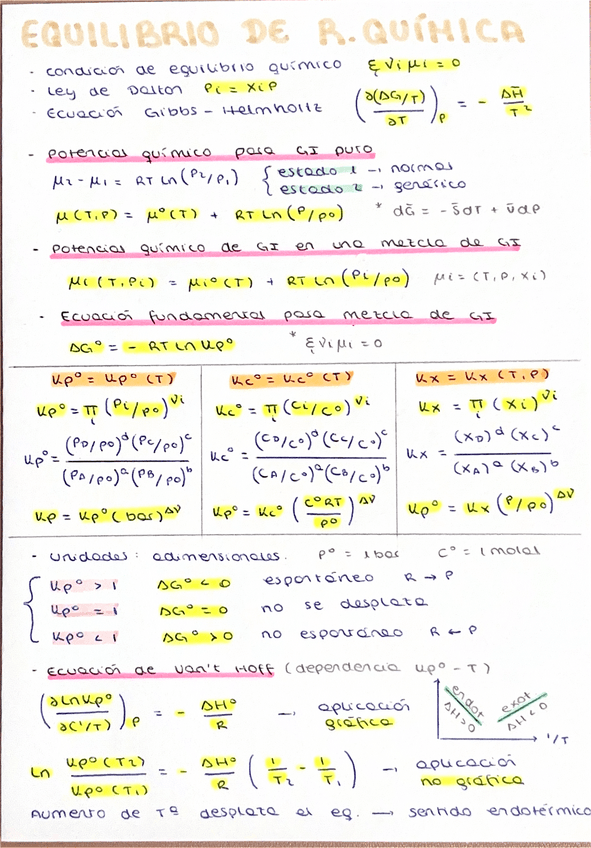 EQUILIBRIO DE R. QUÍMICA
· condición de equilibrio químico Σ νi μi = 0
· Ley de Dalton Pi = Xi P
· Ecuación Gibbs - Helmholtz (∂(ΔG/T)/∂T)p = - ΔH̄/T²
- Potencial químico para GI puro
μ2 - μ1 = RT Ln (P2/P1) { estado 1 → normal
estado 2 → genérico
μ(T,P) = μ°(T) + RT Ln (P/P°) * dḠ = -S̄dT + v̄dp
- Potencial químico de GI en una mezcla de GI
μi (T, Pi) = μi° (T) + RT Ln (Pi/P°) μi = (T, P, xi)
· Ecuación fundamental para mezcla de GI
ΔG° = - RT Ln Kp° * Σ νi μi = 0
Kp° = Kp° (T)
Kp° = πi (Pi/P°)^νi
Kp° = (PD/P°)^d (PC/P°)^c / (PA/P°)^a (PB/P°)^b
Kp = Kp° (bar)^Δν
Kc° = Kc° (T)
Kc° = πi (Ci/C°)^νi
Kc° = (CD/C°)^d (CC/C°)^c / (CA/C°)^a (CB/C°)^b
Kp° = Kc° (C°RT/P°)^Δν
Kx = Kx (T, P)
Kx = πi (xi)^νi
Kx = (XD)^d (XC)^c / (XA)^a (XB)^b
Kp° = Kx (P/P°)^Δν
- Unidades: adimensionales. P° = 1 bar C° = 1 molar
{ Kp° > 1 ΔG° < 0 espontáneo R → P
Kp° = 1 ΔG° = 0 no se desplaza
Kp° < 1 ΔG° > 0 no espontáneo R ← P
- Ecuación de Van't Hoff (dependencia Kp° - T)
(∂LnKp°/∂(1/T))p = - ΔH°/R → aplicación gráfica
endot ΔH>0
exot ΔH<0
1/T
Ln Kp°(T2)/Kp°(T1) = - ΔH°/R (1/T2 - 1/T1) → aplicación no gráfica
Aumento de Tª desplaza el eq. → sentido endotérmico